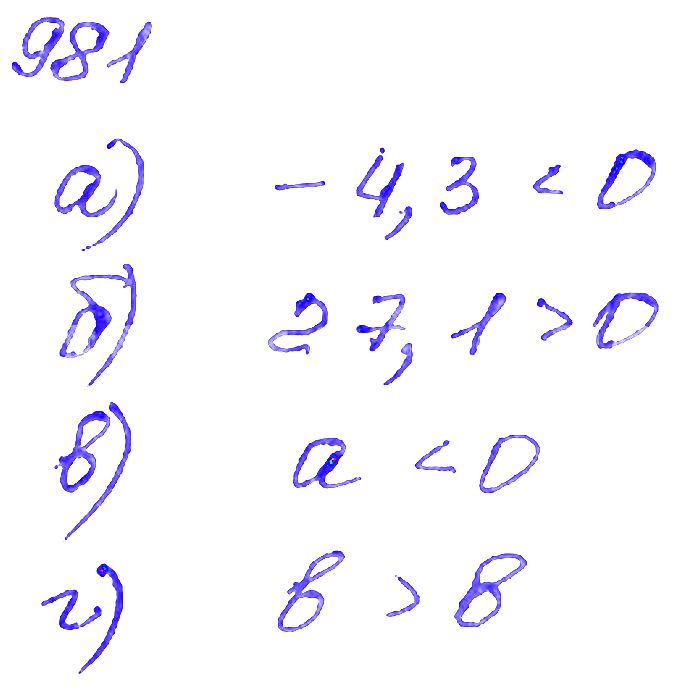 981
а) - 4,3 < 0
б) 27,1 > 0
в) a < 0
г) в > в